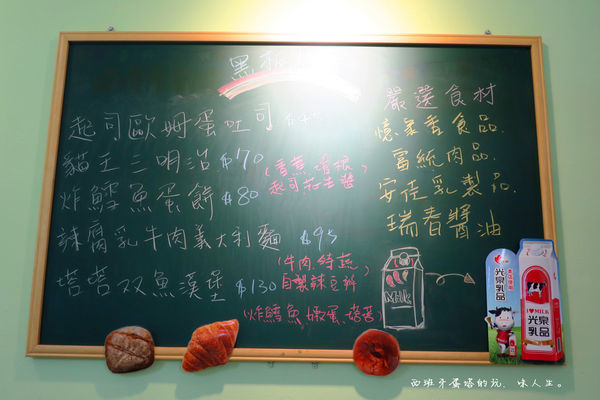 黑板
起司歐姆蛋吐司 $45
貓王三明治 $70
(香蕉、培根
起司花生醬)
炸鱈魚蛋餅 $80
辣腐乳牛肉義大利麵 $95
(牛肉、特蒸
自製辣豆料)
塔塔双魚漢堡 $130
(炸鱈魚、嫩蛋、塔塔)
嚴選食材
憶家香食品.
富統肉品.
安佳乳製品.
瑞春醬油
Milk
光泉乳品
I ♥ MILK
光泉乳品
西班牙蛋塔的玩.味人生。